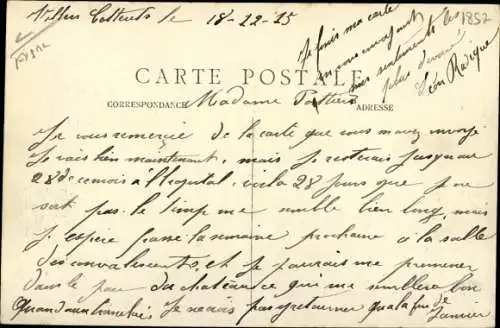 Villers Cotterets le 18-12-15
1857
Aisne
Je finis ma carte
en vous envoyant
mes sentiments les
plus dévoués
Léon Rasique
CARTE POSTALE
CORRESPONDANCE
ADRESSE
Madame
Je vous remercie de la carte que vous m'avez envoyé
Je vais bien maintenant, mais je resterais jusqu'au
28 de ce mois à l'hopital, voila 28 jours que je ne
sort pas le temp me semble bien long, mais
j'espère passé la semaine prochaine à la salle
des convalescents, et je pourrais me promener
dans le parc du chateau ce qui me semblera bon
Quand aux tranchées Je ne vais pas y retourner qu'a la fin de
Janvier